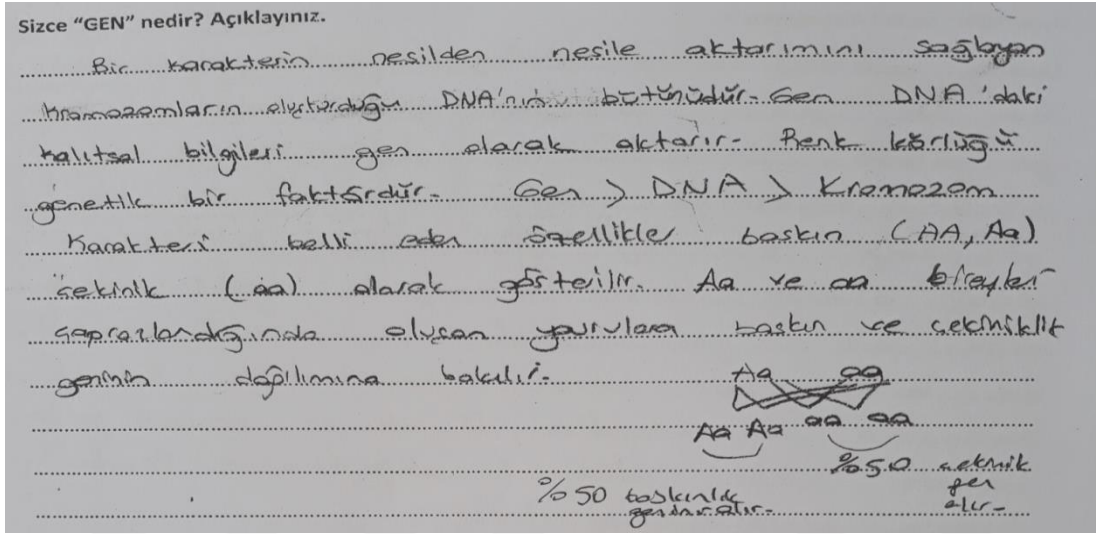 Sizce “GEN” nedir? Açıklayınız.
Bir karakterin nesilden nesile aktarımını sağlayan
kromozomların oluşturduğu DNA'nın bütünüdür. Gen DNA'daki
kalıtsal bilgileri gen olarak aktarır. Renk körlüğü
genetik bir faktördür. Gen > DNA > Kromozom
Karakteri belli eden özellikler baskın (AA, Aa)
çekinik (aa) olarak gösterilir. Aa ve aa bireyleri
çaprazlandığında oluşan yavrulara baskın ve çekiniklik
geninin dağılımına bakılır.
Aa aa
Aa Aa aa aa
%50 çekinik
gen
alır.
%50 baskınlık